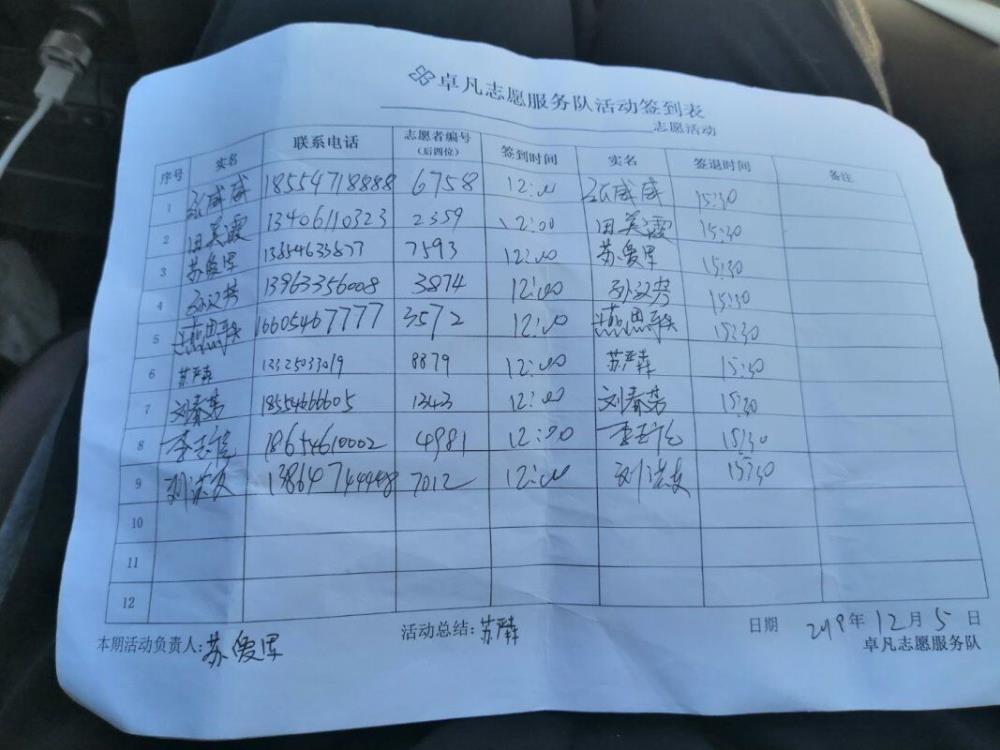 卓凡志愿服务队活动签到表
志愿活动
序号 实名 联系电话 志愿者编号(后四位) 签到时间 实名 签退时间 备注
1 张威威 18554718888 6758 12:00 张威威 15:30
2 田美霞 13406110323 2359 12:00 田美霞 15:30
3 苏爱军 13854633877 7593 12:00 苏爱军 15:30
4 孙汉芳 13963356008 3874 12:00 孙汉芳 15:30
5 燕思轶 16605467777 3572 12:00 燕思轶 15:30
6 苏严犇 13325033019 8879 12:00 苏严犇 15:30
7 刘春芳 18554666605 1343 12:00 刘春芳 15:30
8 李志伦 18654610002 4981 12:00 李志伦 15:30
9 7012 12:00 15:30
10
11
12
本期活动负责人:苏爱军 活动总结:苏严犇 日期 2019年12月5日
卓凡志愿服务队